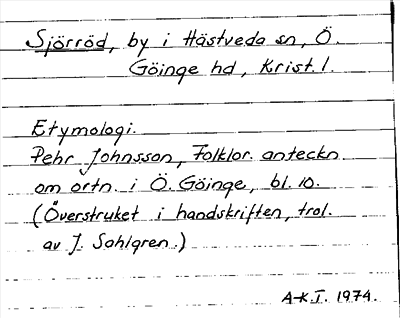 Sjörröd, by i Hästveda sn, Ö.
Göinge hd, Krist. l.
Etymologi.
Pehr Johnsson, Folklor. anteckn.
om ortn. i Ö. Göinge, bl. 10.
(Överstruket i handskriften, trol.
av J. Sahlgren.)
A-K.I. 1974.